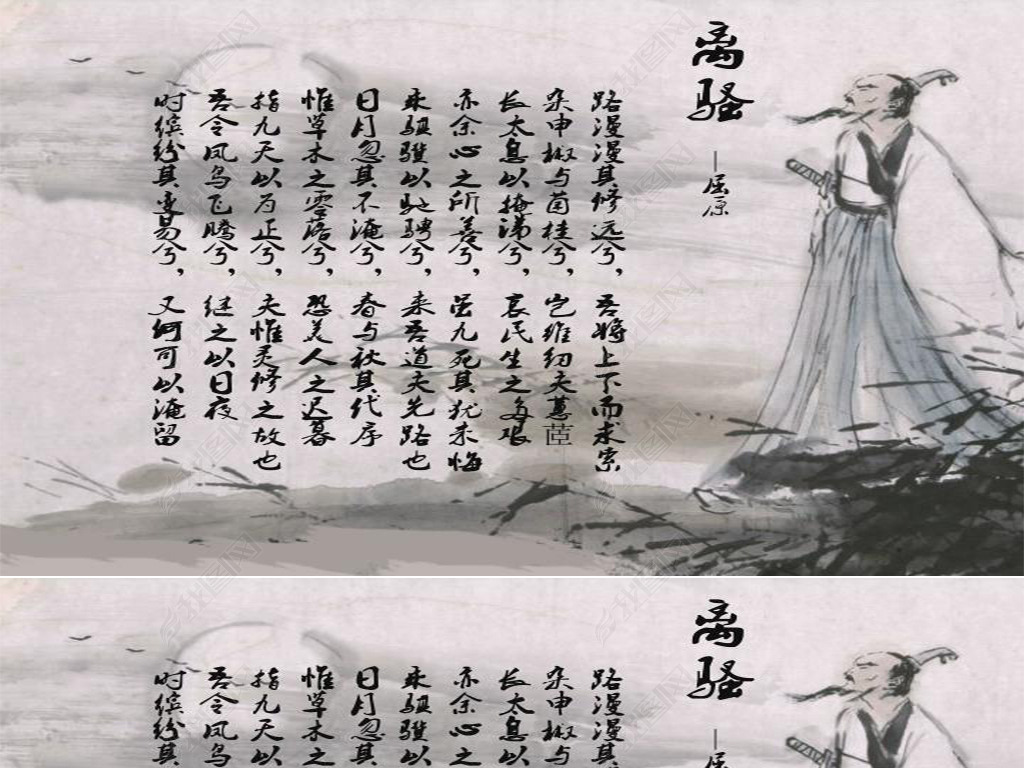 离骚
—屈原
路漫漫其修远兮，吾将上下而求索
杂申椒与菌桂兮，岂维纫夫蕙茝
长太息以掩涕兮，哀民生之多艰
亦余心之所善兮，虽九死其犹未悔
乘骐骥以驰骋兮，来吾道夫先路也
日月忽其不淹兮，春与秋其代序
惟草木之零落兮，恐美人之迟暮
指九天以为正兮，夫惟灵修之故也
吾令凤鸟飞腾兮，继之以日夜
时缤纷其变易兮，又何可以淹留
离骚
—屈
路漫漫其
杂申椒与
长太息以
亦余心之
乘骐骥以
日月忽其
惟草木之
指九天以
吾令凤鸟
时缤纷其